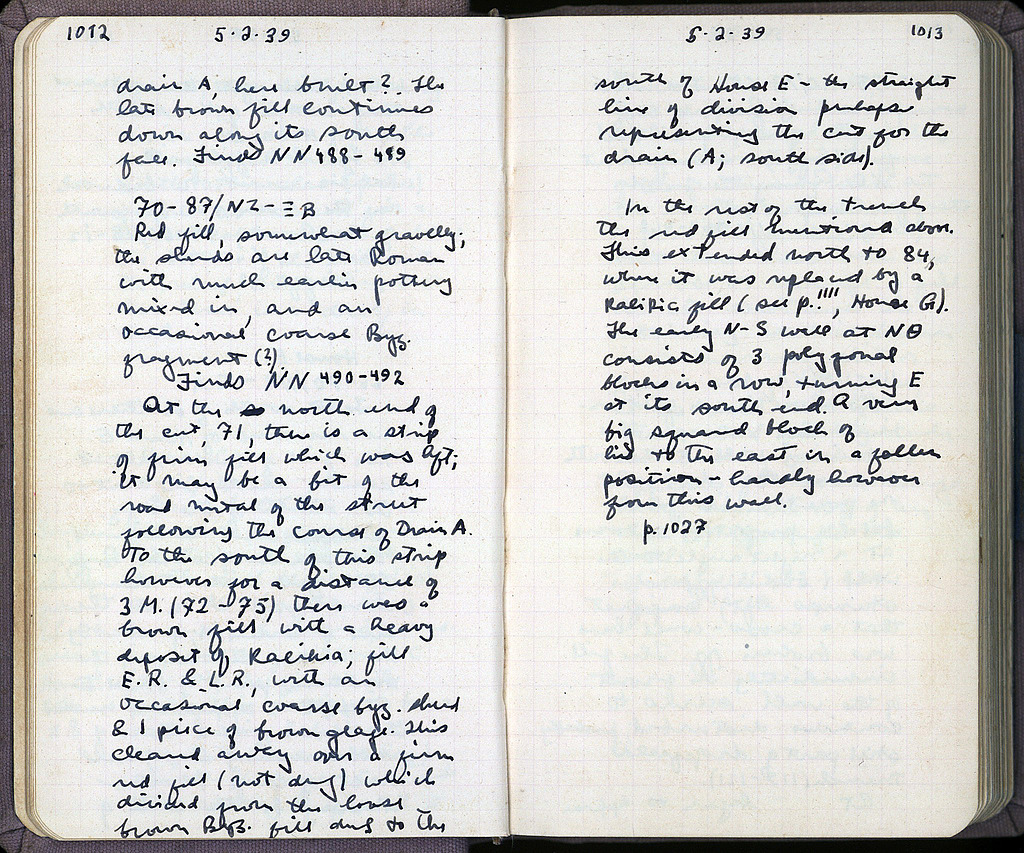 1012 5·2·39
drain A, here built? The
late brown fill continues
down along its south
face. Finds NN 488-489
70-87/ΝΖ-ΞΒ
Red fill, somewhat gravelly;
the sherds are late Roman
with much earlier pottery
mixed in, and an
occasional coarse Byz.
fragment (?)
Finds NN 490-492
At the north end of
the cut, 71, there is a strip
of firm fill which was left;
it may be a bit of the
road metal of the street
following the course of Drain A.
To the south of this strip
however for a distance of
3 M. (72-75) there was a
brown fill with a heavy
deposit of Kalikia; fill
E.R. & L.R., with an
occasional coarse byz. sherd
& 1 piece of brown glaze. This
cleared away over a firm
red fill (not dug) which
divided from the loose
brown Byz. fill dug to the
5·2·39 1013
south of House E - the straight
line of division perhaps
representing the cut for the
drain (A; south side).
In the rest of the trench
the red fill mentioned above.
This extended north to 84,
where it was replaced by a
Kalikia fill (see p. 1111, House G).
The early N-S wall at ΝΘ
consists of 3 polygonal
blocks in a row, turning E
at its south end. A very
big squared block of
lies to the east in a fallen
position - hardly however
from this wall.
p. 1027